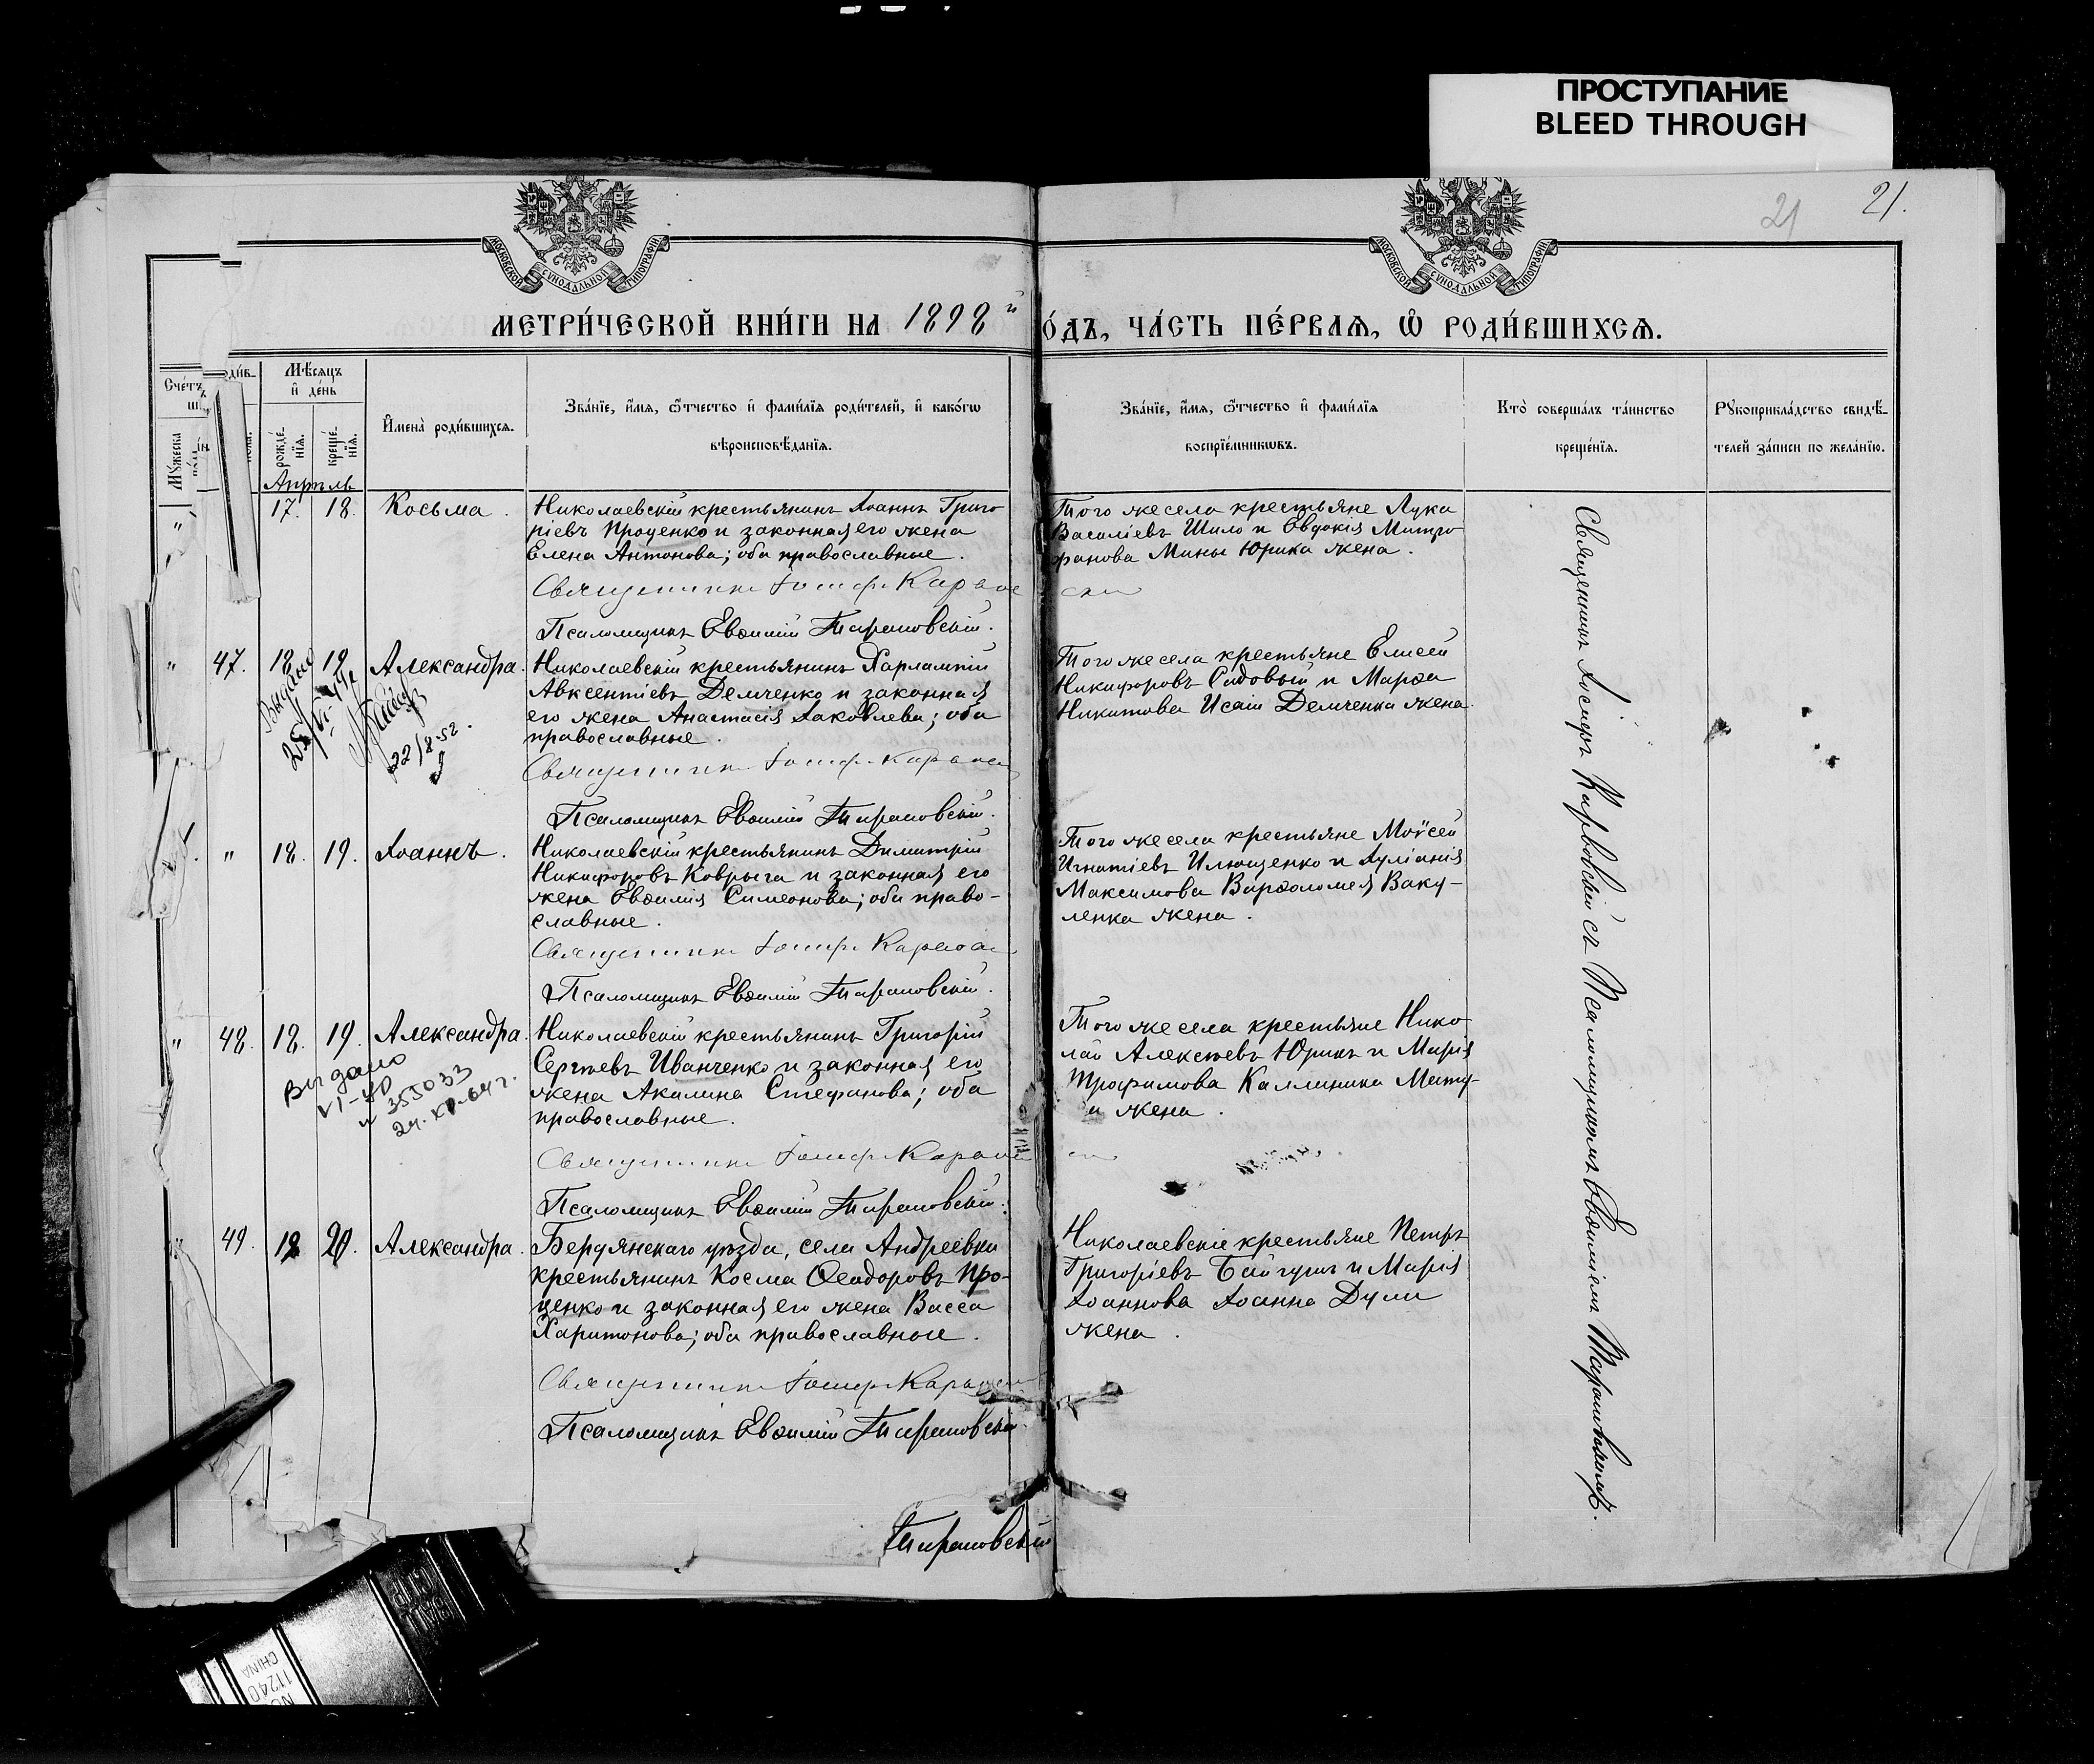 ПРОСТУПАНИЕ
BLEED THROUGH
21
21.
МОСКОВСКОЙ СѴНОДАЛЬНОЙ ТИПОГРАФІИ
МОСКОВСКОЙ СѴНОДАЛЬНОЙ ТИПОГРАФІИ
МЕТРИ́ЧЕСКОЙ КНИ́ГИ НА 1898й
О́ДЪ, ЧА́СТЬ ПЕ́РВАѦ, Ѽ РОДИ́ВШИХСѦ.
Сче́тъ
Мѣ́сѧцъ
и҆ де́нь
Мꙋ́жеска
рожде́-
нїѧ.
креще́-
нїѧ.
И҆мена̀ роди́вшихсѧ.
Зва́нїе, и҆́мѧ, ѻ҆́тчество и҆ фамі́лїѧ роди́телей, и҆ како́гѡ
вѣроисповѣ́данїѧ.
Зва́нїе, и҆́мѧ, ѻ҆́тчество и҆ фамі́лїѧ
воспрїе́мникѡвъ.
Кто̀ соверша́лъ та́инство
креще́нїѧ.
Рꙋкоприкла́дство свидѣ́-
телей за́писи по жела́нїю.
Апрѣль
" 17. 18. Косьма.
Николаевскій крестьянинъ Іоаннъ Григо
ріевъ Проценко и законная его жена
Елена Антонова; оба православные.
Священникъ Іосифъ Карвов
ски
Псаломщикъ Евѳимій Тарановскій.
Того же села крестьяне Лука
Василіевъ Шило и Евдокія Митро
фанова Мины Юрика жена.
" 47. 18 19 Александра.
Николаевскій крестьянинъ Харлампій
Авксентіевъ Демченко и законная
его жена Анастасія Іаковлева; оба
православные.
Священникъ Іосифъ Карвов
Псаломщикъ Евѳимій Тарановскій.
Выдано
22/8-52.
Того же села крестьяне Елисей
Никифоровъ Садовый и Марѳа
Никитова Исаіи Демченка жена.
" 18. 19. Іоаннъ.
Николаевскій крестьянинъ Димитрій
Никифоровъ Коврыга и законная его
жена Евѳимія Симеонова; оба право-
славные.
Священникъ Іосифъ Карвов
Псаломщикъ Евѳимій Тарановскій.
Того же села крестьяне Моѵсей
Игнатіевъ Илющенко и Іуліанія
Максимова Варѳоломея Ваку-
ленка жена.
" 48. 18. 19. Александра.
Николаевскій крестьянинъ Григорій
Сергѣевъ Иванченко и законная его
жена Акилина Стефанова; оба
православные.
Священникъ Іосифъ Карвов
ски
Псаломщикъ Евѳимій Тарановскій.
Выдано
VI-ЯР
№ 355033
24.XI-64 г.
Того же села крестьяне Нико
лай Алексѣевъ Юрикъ и Марія
Трофимова Каллиника
жена.
" 49. 18 20. Александра.
Бердянскаго уѣзда, села Андреевки
крестьянинъ Косма Ѳеодоровъ Про-
ценко и законная его жена Васса
Харитонова; оба православные.
Священникъ Іосифъ Карвовски
Псаломщикъ Евѳимій Тарановскій
Николаевскіе крестьяне Петръ
Григоріевъ и Марія
Іоаннова Іоанна Дули
жена.
Священникъ Іосифъ Карвовскій съ Псаломщикомъ Евѳиміемъ Тарановскимъ.
Тарановскій
11240
CHINA